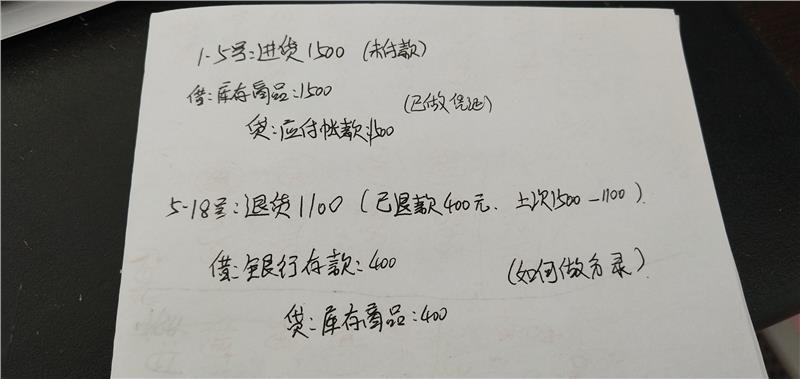 1-5号:进货1500 (未付款)
借:库存商品:1500
(已做凭证)
贷:应付帐款:1500
5-18号:退货1100 (已退款400元、上次1500-1100).
借:银行存款:400
(如何做分录).
贷:库存商品:400